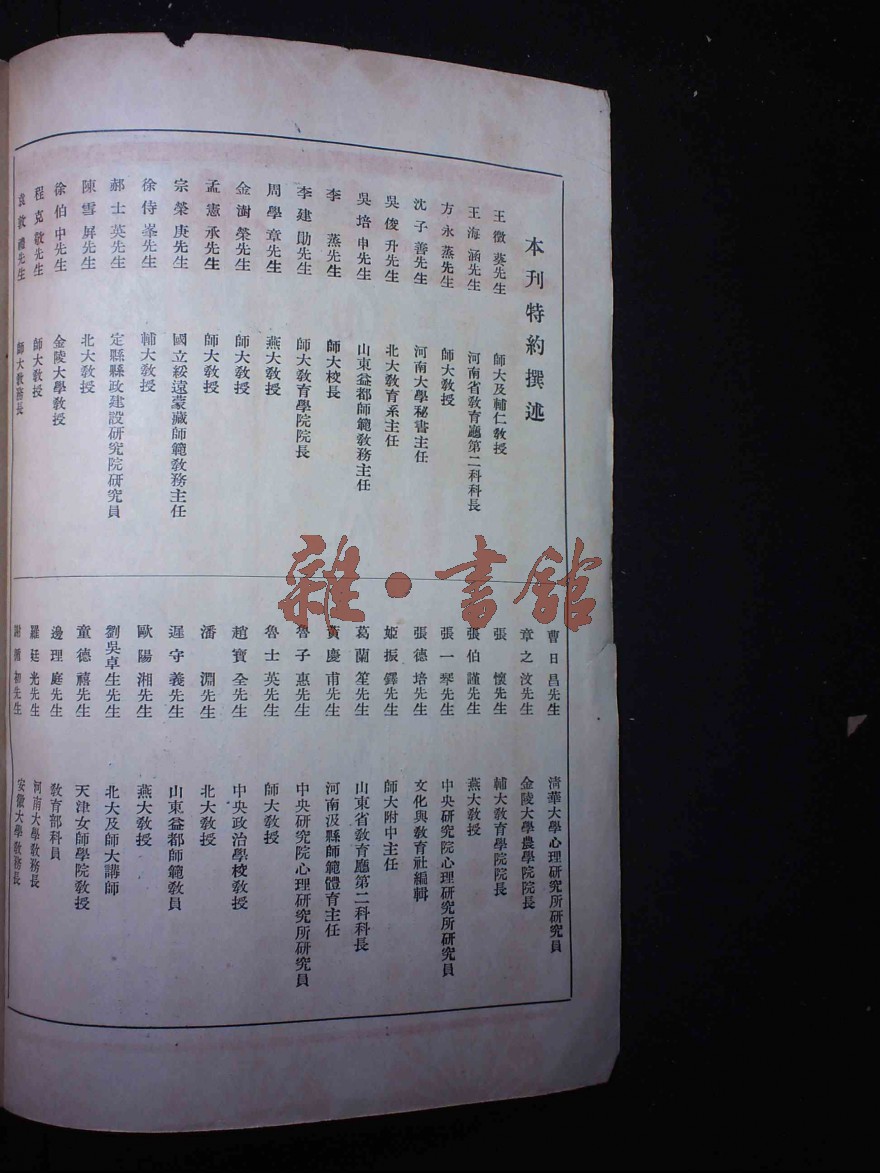 本刊特約撰述
王徵葵先生 師大及輔仁教授
王海涵先生 河南省教育廳第二科科長
方永蒸先生 師大教授
沈子善先生 河南大學秘書主任
吳俊升先生 北大教育系主任
吳培申先生 山東益都師範教務主任
李蒸先生 師大校長
李建勛先生 師大教育學院院長
周學章先生 燕大教授
金澍榮先生 師大教授
孟憲承先生 師大教授
宗榮庚先生 國立綏遠蒙藏師範教務主任
徐侍峯先生 輔大教授
郝士英先生 定縣縣政建設研究院研究員
陳雪屏先生 北大教授
徐伯中先生 金陵大學教授
程克敬先生 師大教授
袁敦禮先生 師大教務長
曹日昌先生 清華大學心理研究所研究員
章之汶先生 金陵大學農學院院長
張懷先生 輔大教育學院院長
張伯謹先生 燕大教授
張一琴先生 中央研究院心理研究所研究員
張德培先生 文化與教育社編輯
姬振鐸先生 師大附中主任
葛蘭笙先生 山東省教育廳第二科科長
黃慶甫先生 河南汲縣師範體育主任
魯子惠先生 中央研究院心理研究所研究員
魯士英先生 師大教授
趙寶全先生 中央政治學校教授
潘淵先生 北大教授
遲守義先生 山東益都師範教員
歐陽湘先生 燕大教授
劉吳卓生先生 北大及師大講師
童德禧先生 天津女師學院教授
邊理庭先生 教育部科員
羅廷光先生 河南大學教務長
謝循初先生 安徽大學教務長
雜·書館